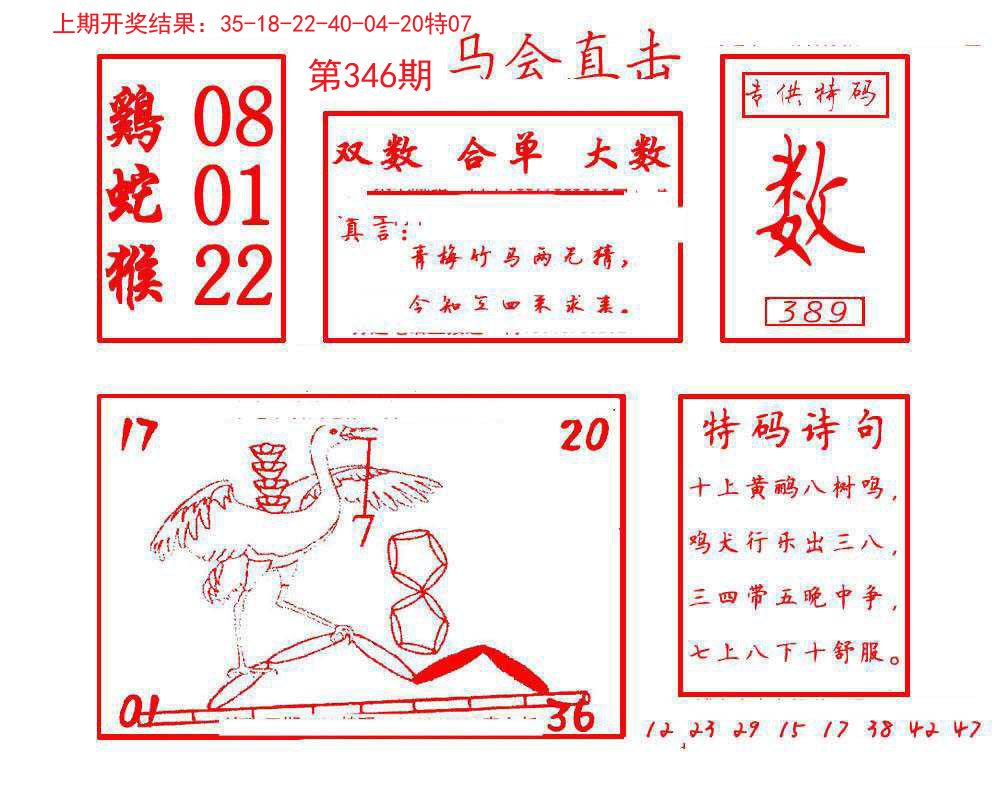 上期开奖结果：35-18-22-40-04-20特07
马会直击
第346期
鷄 08
蛇 01
猴 22
双数 合单 大数
真言：
青梅竹马两无猜，
今知三四来求真。
专供特码
数
389
17
20
7
01
36
特码诗句
十上黄鹂八树鸣，
鸡犬行乐出三八，
三四带五晚中争，
七上八下十舒服。
12 23 29 15 17 38 42 47